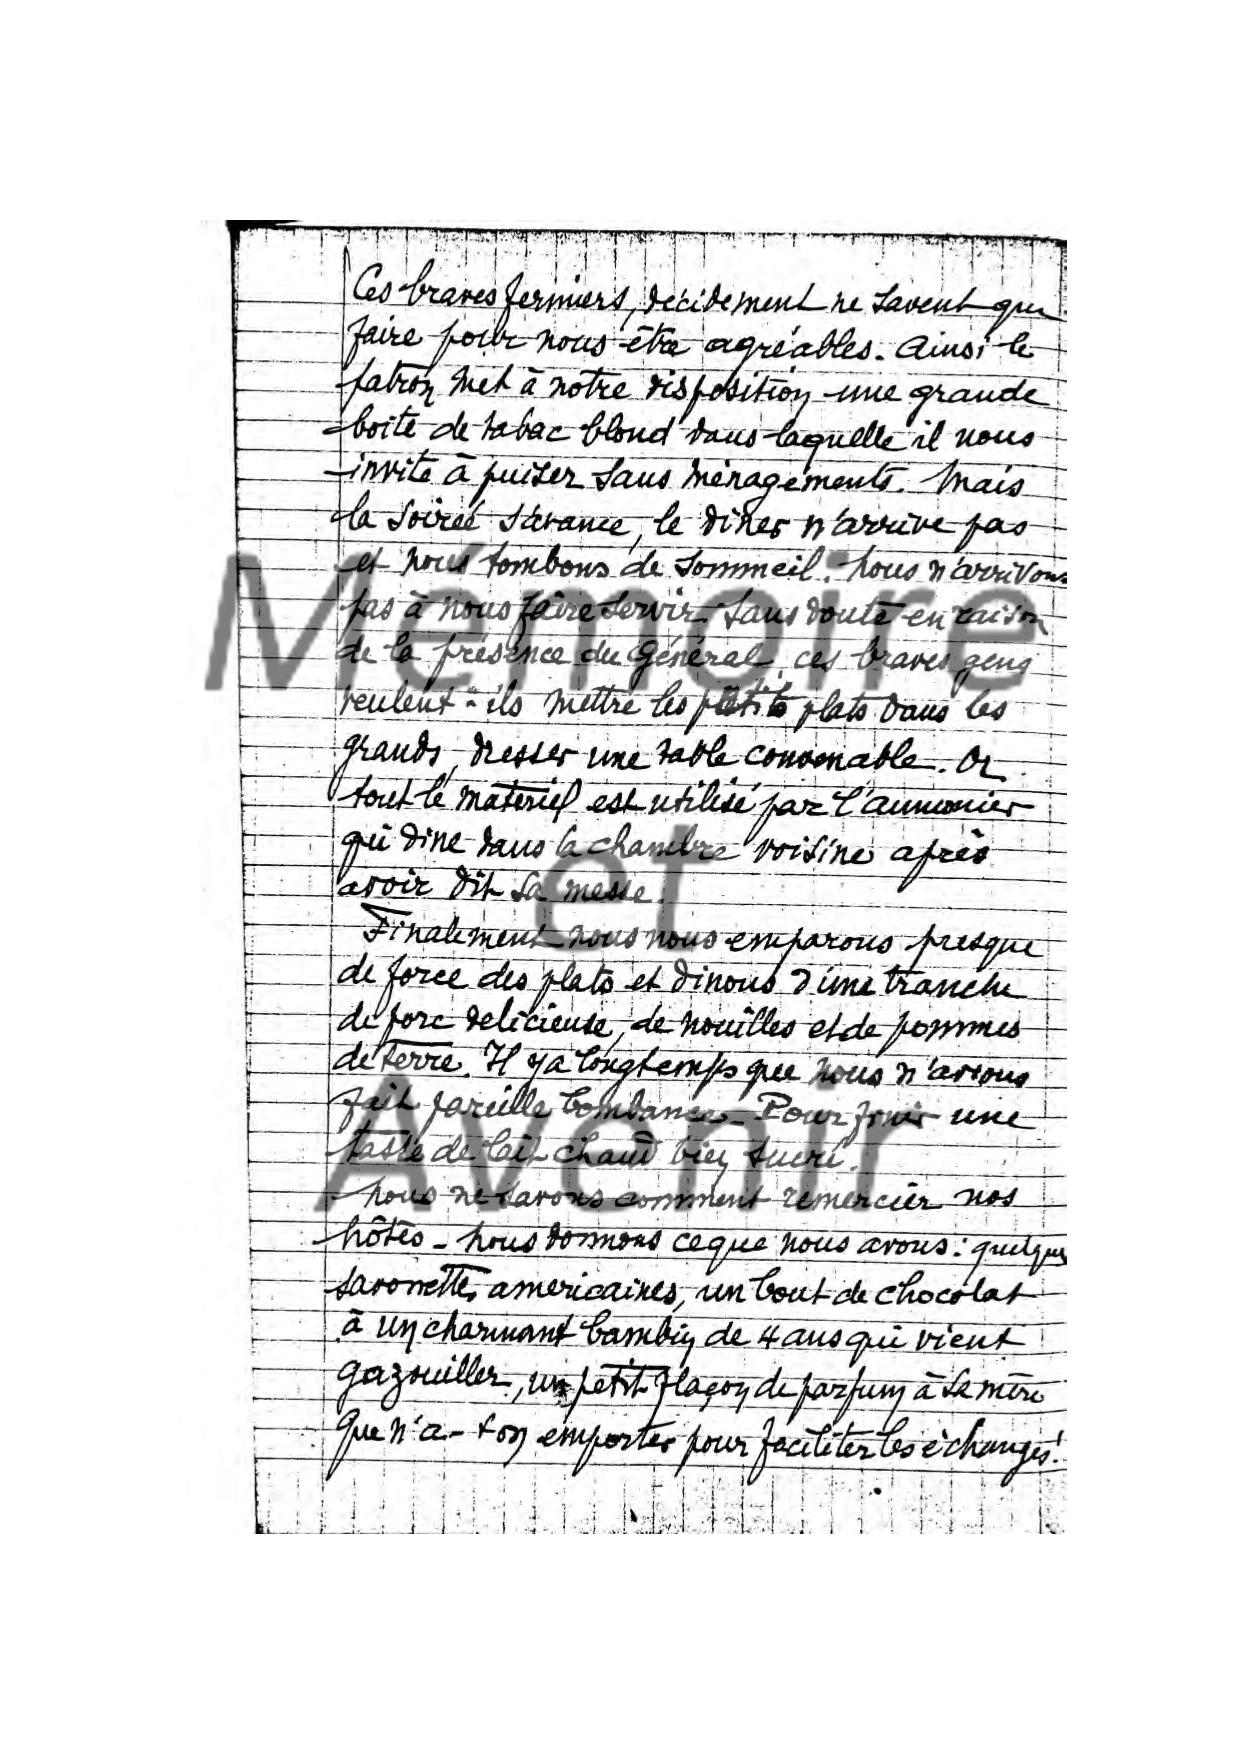 Ces braves fermiers, décidement ne savent que
faire pour nous être agréables. Ainsi le
patron met à notre disposition une grande
boite de tabac blond dans laquelle il nous
invite à puiser sans ménagements. Mais
la soirée s'avance, le dîner n'arrive pas
et nous tombons de sommeil. Nous n'arrivons
pas à nous faire servir. Sans doute en raison
de la présence du Général, ces braves gens
veulent-ils mettre les petits plats dans les
grands, dresser une table convenable. Or
tout le matériel est utilisé par l'aumonier
qui dine dans la chambre voisine après
avoir dit sa messe.
Finalement nous nous emparons presque
de force des plats et dinons d'une tranche
de porc delicieuse, de nouilles et de pommes
de terre. Il y a longtemps que nous n'avons
fait pareille bombance. Pour finir une
tasse de lait chaud bien sucré.
Nous ne savons comment remercier nos
hôtes - Nous donnons ce que nous avons : quelques
savonettes americaines, un bout de chocolat
à un charmant bambin de 4 ans qui vient
gazouiller, un petit flaçon de parfum à sa mère
Que n'a-t-on emporter pour faciliter les échanges!
Mémoire
et
Avenir